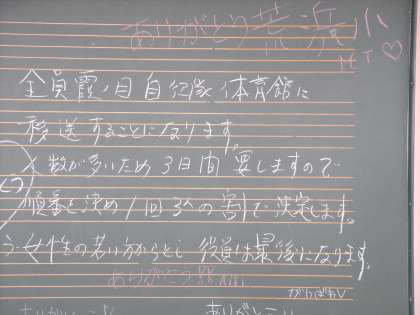 ありがとう荒浜小
M・T♡
全員霞ノ目自衛隊体育館に
移送することになります。
人数が多いため3日間要しますので
順番を決め1回3人の割で決定します。
女性の若い方からとし 役員は最後になります。
ありがとう
がんばれ
ありがとう
ありがとう